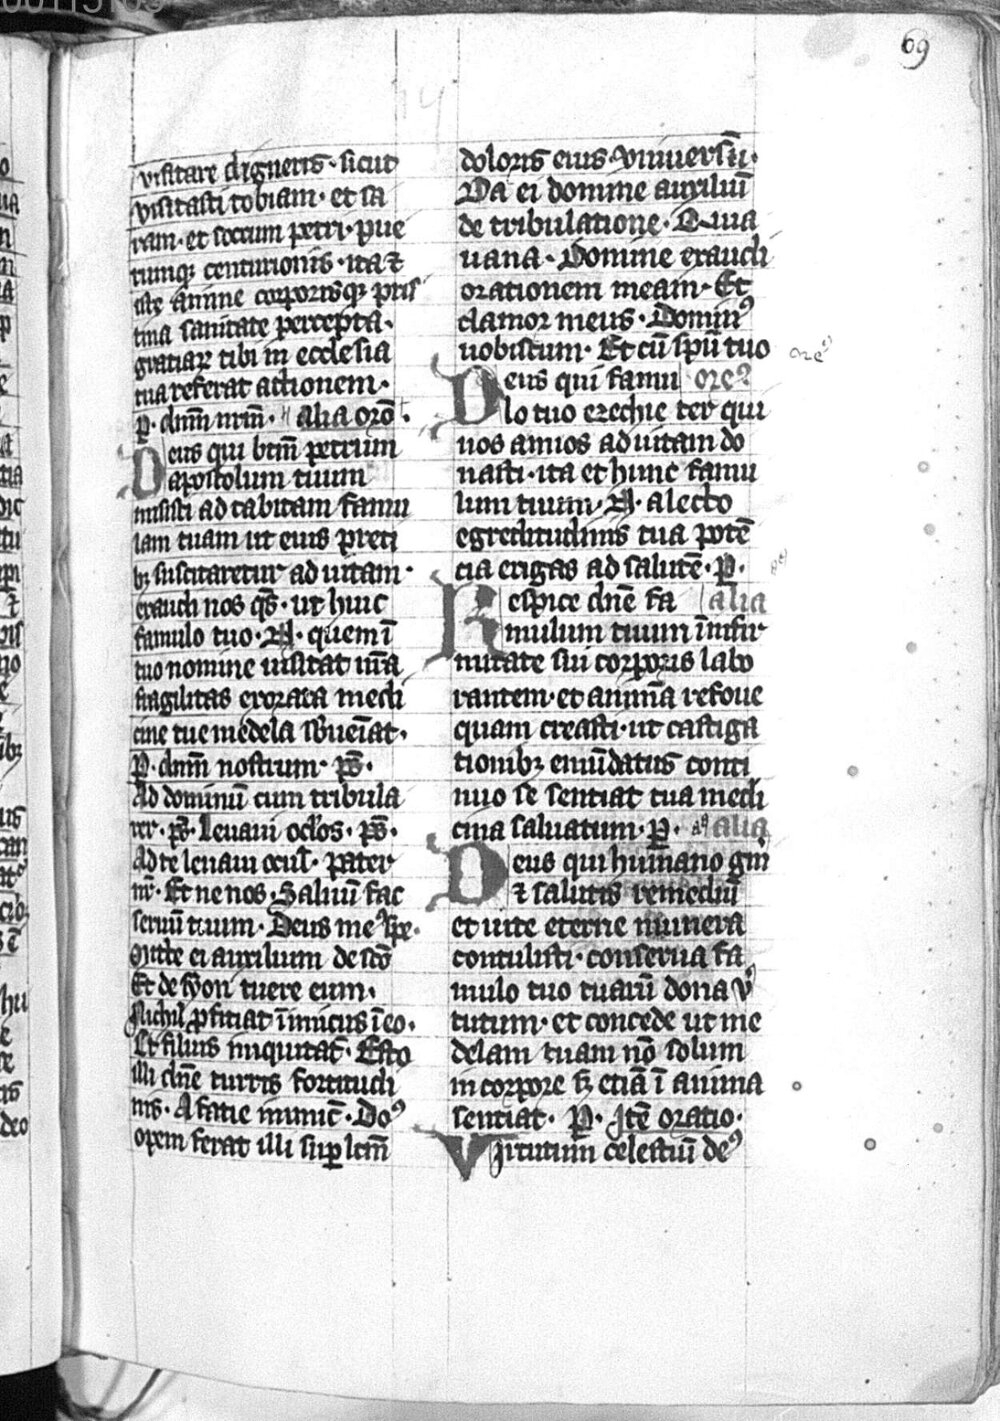 69
visitare digneris · sicut
visitasti tobiam · et sa
ram · et socrum petri · pue
rumqꝫ centurionis · ita ⁊
iste anime corporisqꝫ pris
tina sanitate percepta ·
gratiaꝝ tibi in ecclesia
tua referat actionem ·
P · dnm̄ nrm̄ · alia orō ·
Deus qui btm̄ petrum
apostolum tuum
misisti ad tabitam famu
lam tuam ut eius preci
bꝫ suscitaretur ad uitam ·
exaudi nos qs̄ · ut hunc
famulo tuo · N · quem ī
tuo nomine uisitat nr̄a
fragilitas exorata medi
cine tue medela sb̄ueīat ·
P · dnm̄ nostrum · ps̄ ·
Ad dominū cum tribula
rer · ps̄ · Leuaui oc̄los · ps̄ ·
Ad te leuaui ocul̄ · pater
nr̄ · Et ne nos · Saluū fac
seruū tuum · Deus meꝰ spe ·
Mitte ei auxilium de scō
Et de syon tuere eum ·
Nichil ꝓficiat īimicus ī eo ·
Et filius iniquitat̄ · Esto
illi dnē turris fortitudi
nis · A facie inimic̄ · Doꝰ
opem ferat illi suꝑ lcm̄
doloris eius · vniuersū ·
Da ei domine auxiliū
de tribulatione · Q · uia
uana · Domine exaudi
orationem meam · Et
clamor meus · Dominꝰ
uobiscum · Et cū spū tuo
Deus qui famu oreꝰ
lo tuo ezechie ter qui
nos annos ad uitam do
nasti · ita et hunc famu
lum tuum · N · a lecto
egretitudinis tua potē
cia erigas ad salutē · P ·
Respice dnē fa alia
mulum tuum īinfir
mitate sui corporis labo
rantem · et animā refoue
quam creasti · ut castiga
tionibꝫ emūdatus conti
nuo se sentiat tua medi
cina saluatum · P · alia
Deus qui humano gn̄i
⁊ salutis remediū
et uite eterne munera
contulisti · conserua fa
mulo tuo tuarū dona v̄
tutum · et concede ut me
delam tuam nō solum
in corpore s̄ etiā ī anima
sentiat · P · Itē oratio ·
Virtutum celestiū deꝰ